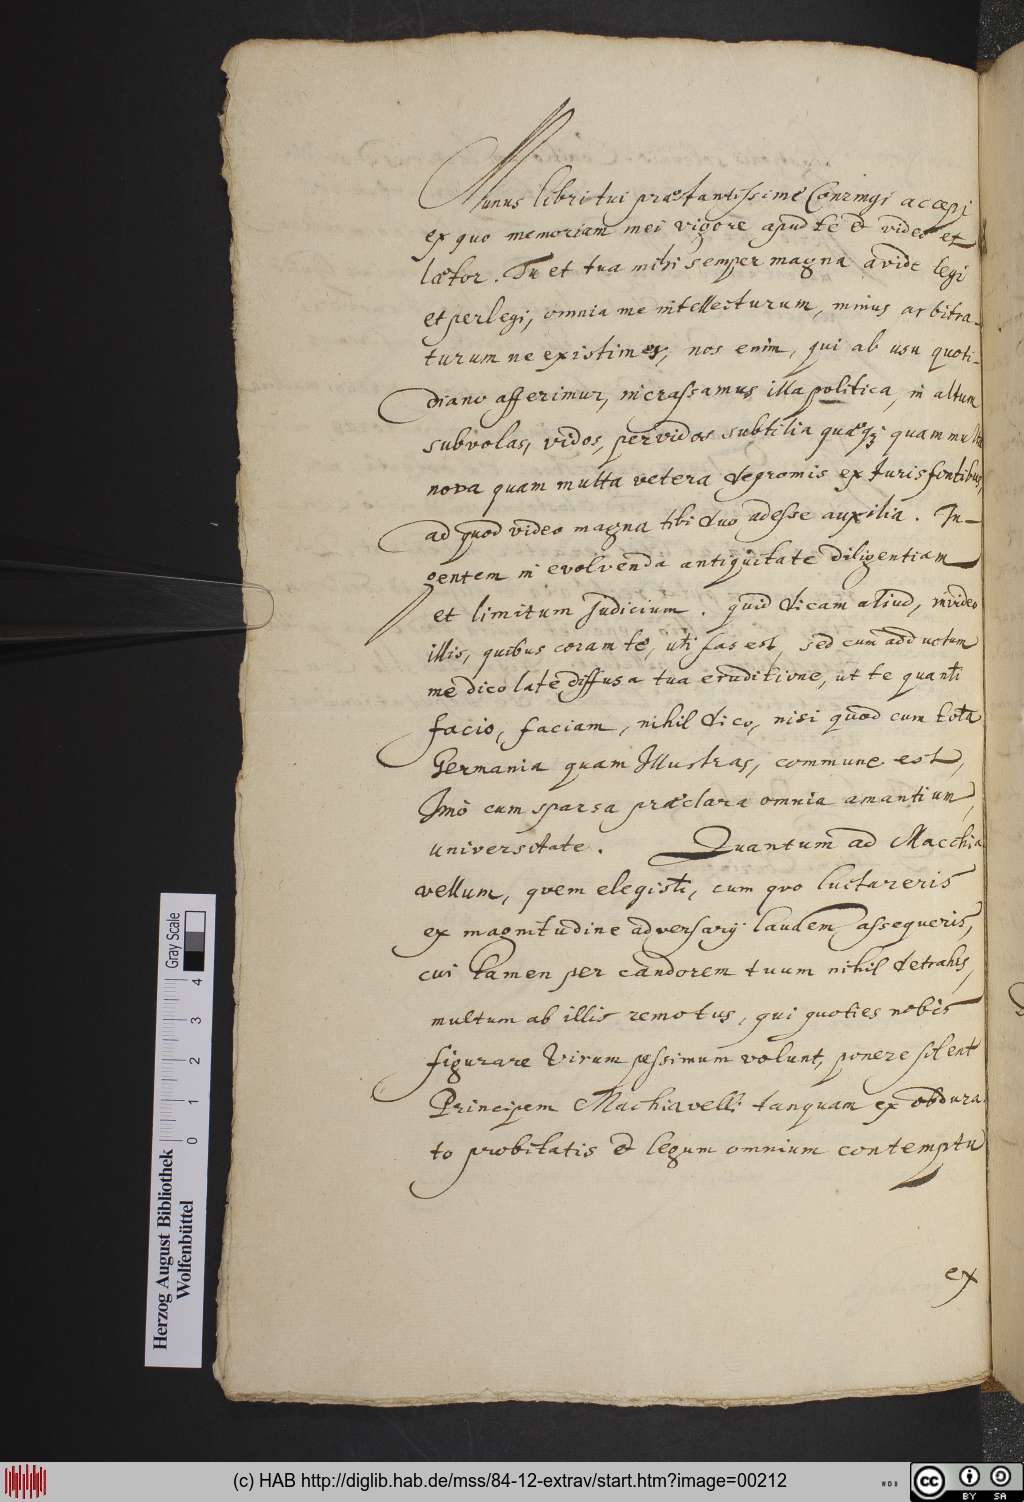 Munus libri tui præstantissime Conringi accepi
ex quo memoriam mei vigore apud te & video et
lætor. Tu et tua mihi semper magna avide legi
et perlegi, omnia me intellecturum, minus arbitra-
turum ne existimes, nos enim, qui ab usu quoti-
diano afferimur, incrassamus illa politica, in altum
subvolas, vides, pervides subtilia quæq; quam multa
nova quam multa vetera depromis ex Juris fontibus,
ad quod video magna tibi duo adesse auxilia. In-
gentem in evolvenda antiquitate diligentiam
et limitum Judicium. quid dicam aliud, invideo
illis, quibus coram te, uti fas est, sed cum adductum
me dico late diffusa tua eruditione, ut te quanti
facio, faciam, nihil dico, nisi quod cum tota
Germania quam Illustras, commune est,
Imò cum sparsa præclara omnia amantium,
universitate. Quantum ad Macchia
vellum, quem elegisti, cum quo luctareris
ex magnitudine adversarij laudem assequeris,
cui tamen per candorem tuum nihil detrahis,
multum ab illis remotus, qui quoties nobis
figurare Virum pessimum volunt, ponere solent
Principem Machiavelli tanquam ex obdura
to probitatis & legum omnium contemptu
ex
Herzog August Bibliothek
Wolfenbüttel
0 1 2 3 4
Gray Scale
(c) HAB http://diglib.hab.de/mss/84-12-extrav/start.htm?image=00212
WDB
CC BY SA